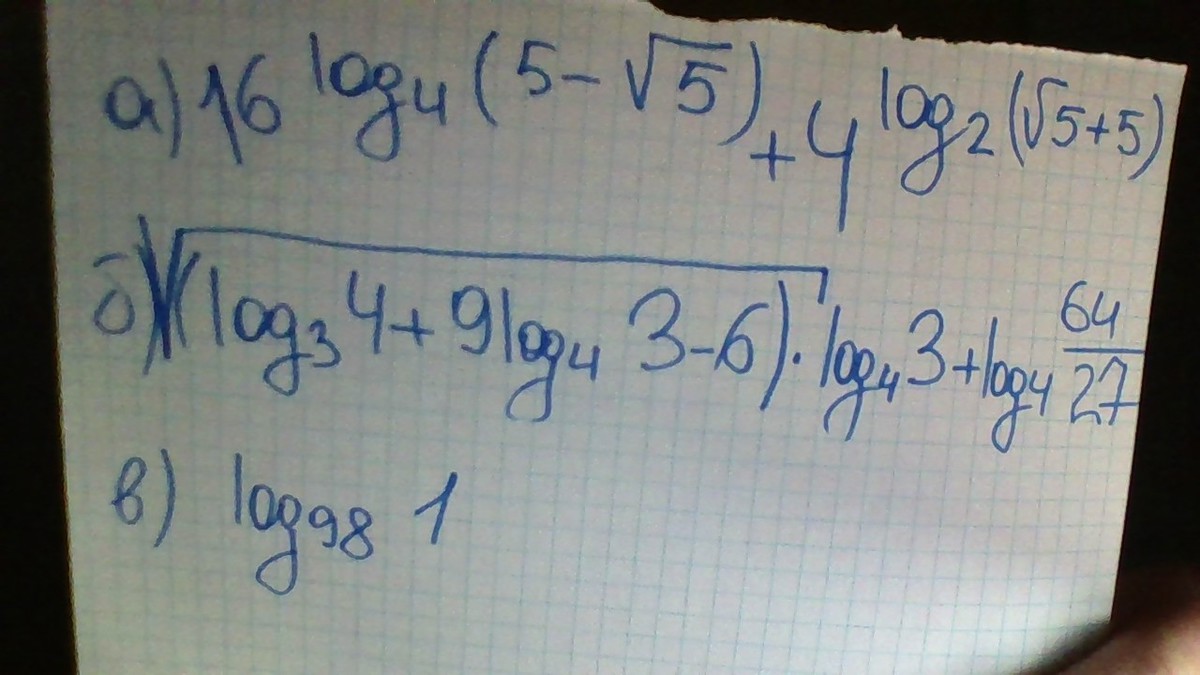 а) 16^log₄(5-√5) + 4^log₂(√5+5)
б) √(log₃4+9log₄3-6)·log₄3+log₄ 64/27
в) log₉₈ 1